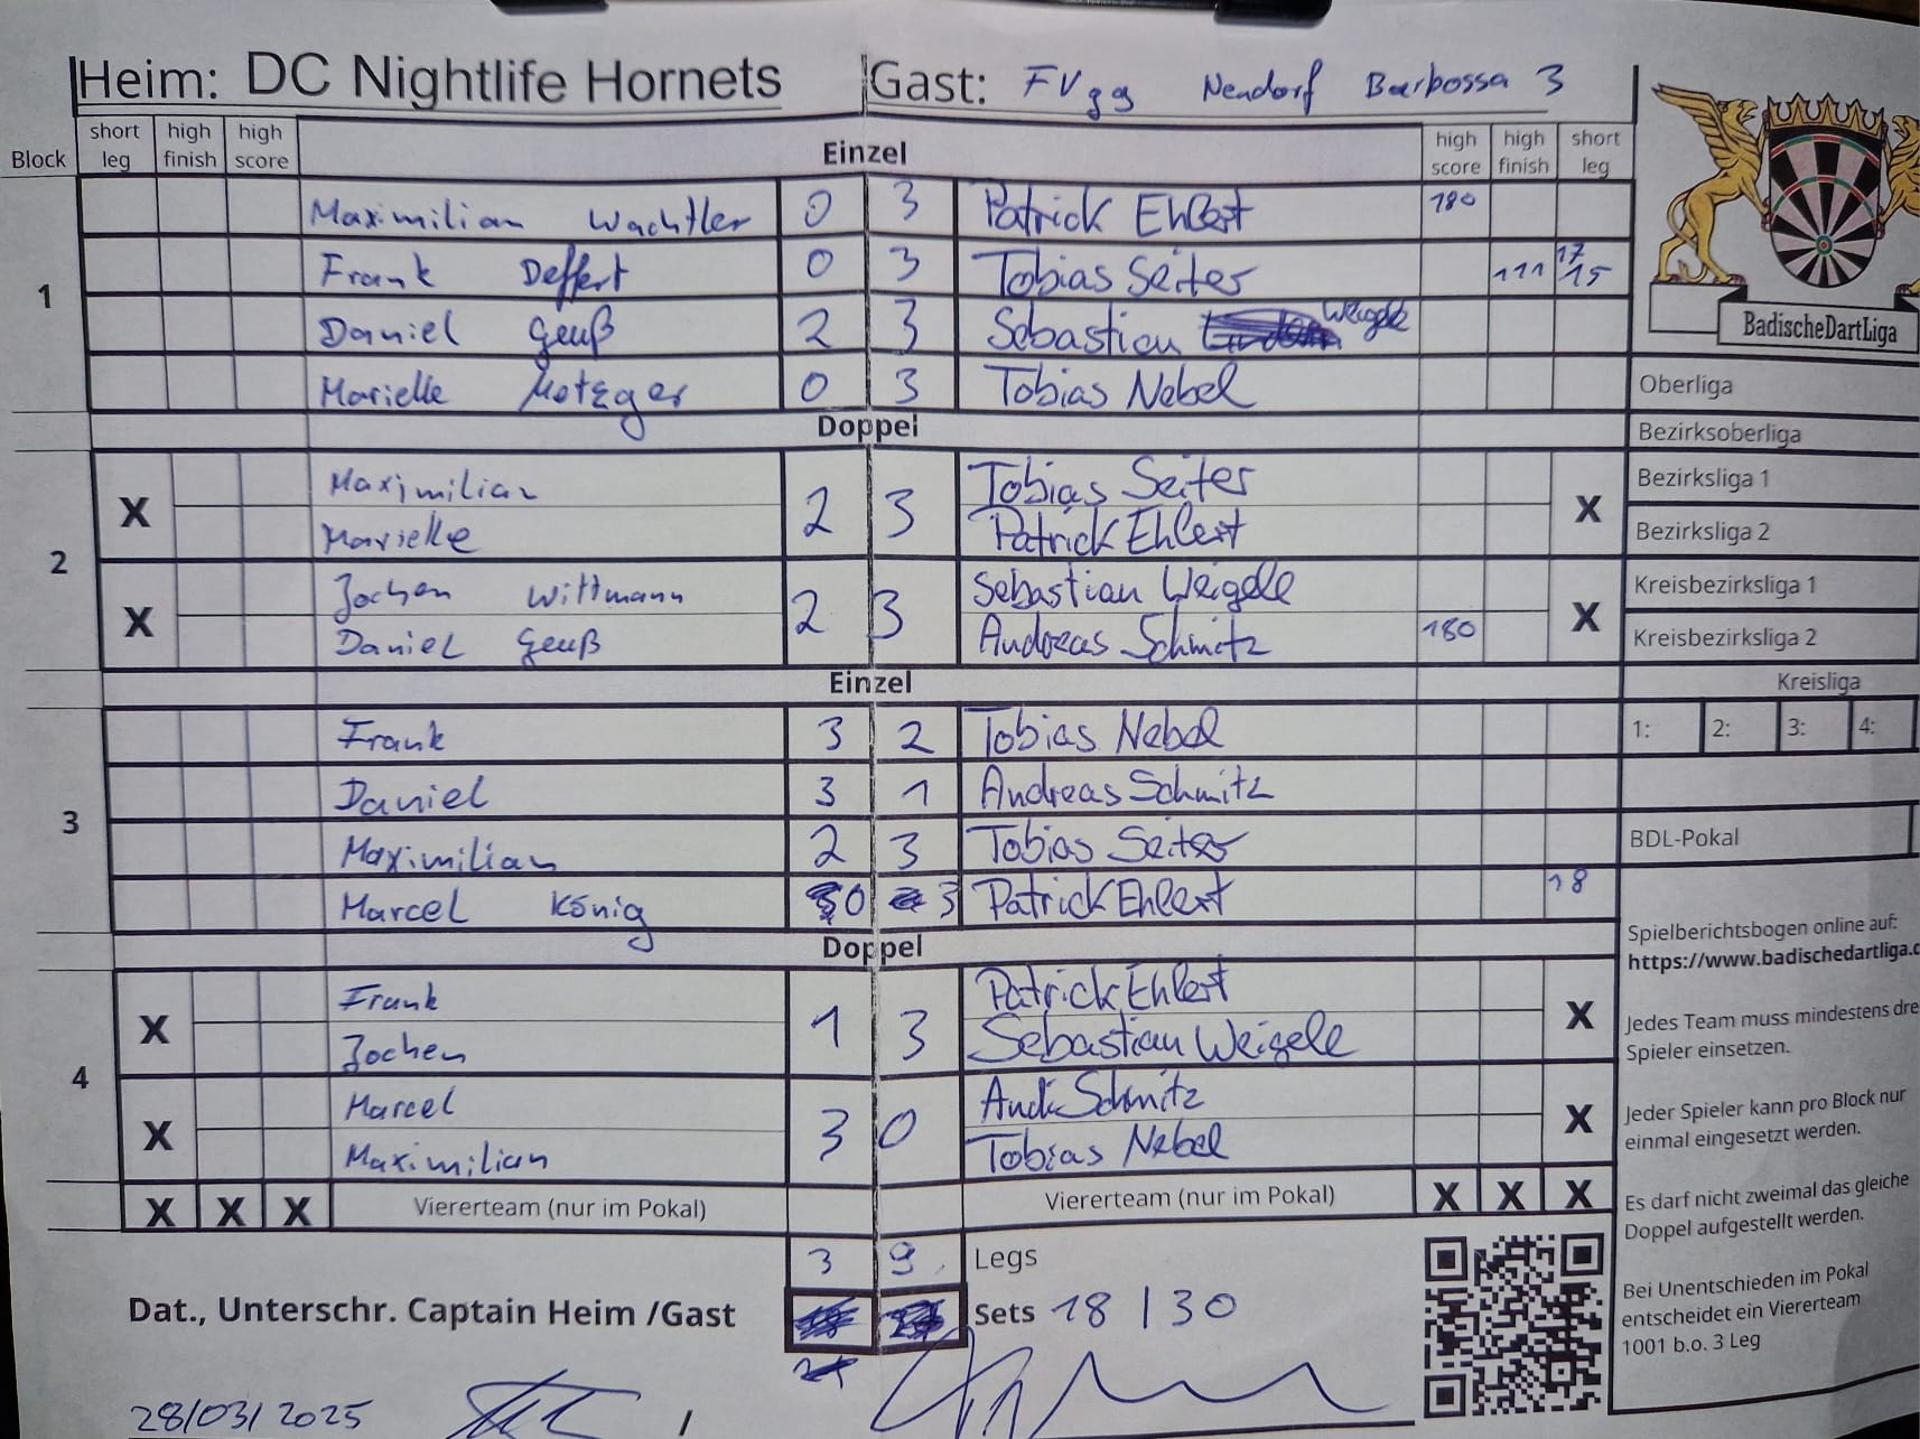 Heim: DC Nightlife Hornets Gast: FVgg Nendorf Barbossa 3
Block short leg high finish high score Einzel high score high finish short leg
1
Maximilian Wachtler 0 3 Patrick Ehlert 180
Frank Deffert 0 3 Tobias Seiter 111 17 15
Daniel Geuß 2 3 Sebastian Weigele
Marielle Metzger 0 3 Tobias Nebel
BadischeDartLiga
Oberliga
Doppel
Bezirksoberliga
2
X Maximilian 2 3 Tobias Seiter X
Marielle Patrick Ehlert
Bezirksliga 1
Bezirksliga 2
X Jochen Wittmann 2 3 Sebastian Weigele X
Daniel Geuß Andreas Schmitz 180
Kreisbezirksliga 1
Kreisbezirksliga 2
Einzel
Kreisliga
1: 2: 3: 4:
3
Frank 3 2 Tobias Nebel
Daniel 3 1 Andreas Schmitz
Maximilian 2 3 Tobias Seiter
Marcel König 0 3 Patrick Ehlert 18
BDL-Pokal
Doppel
4
X Frank 1 3 Patrick Ehlert X
Jochen Sebastian Weigele
X Marcel 3 0 Andi Schmitz X
Maximilian Tobias Nebel
X X X Viererteam (nur im Pokal) Viererteam (nur im Pokal) X X X
3 9 Legs
Dat., Unterschr. Captain Heim /Gast Sets 18 / 30
28/03/2025 /
Spielberichtsbogen online auf:
https://www.badischedartliga.
Jedes Team muss mindestens dre
Spieler einsetzen.
Jeder Spieler kann pro Block nur
einmal eingesetzt werden.
Es darf nicht zweimal das gleiche
Doppel aufgestellt werden.
Bei Unentschieden im Pokal
entscheidet ein Viererteam
1001 b.o. 3 Leg